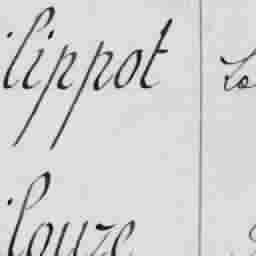 ilippot Lo
ilouze